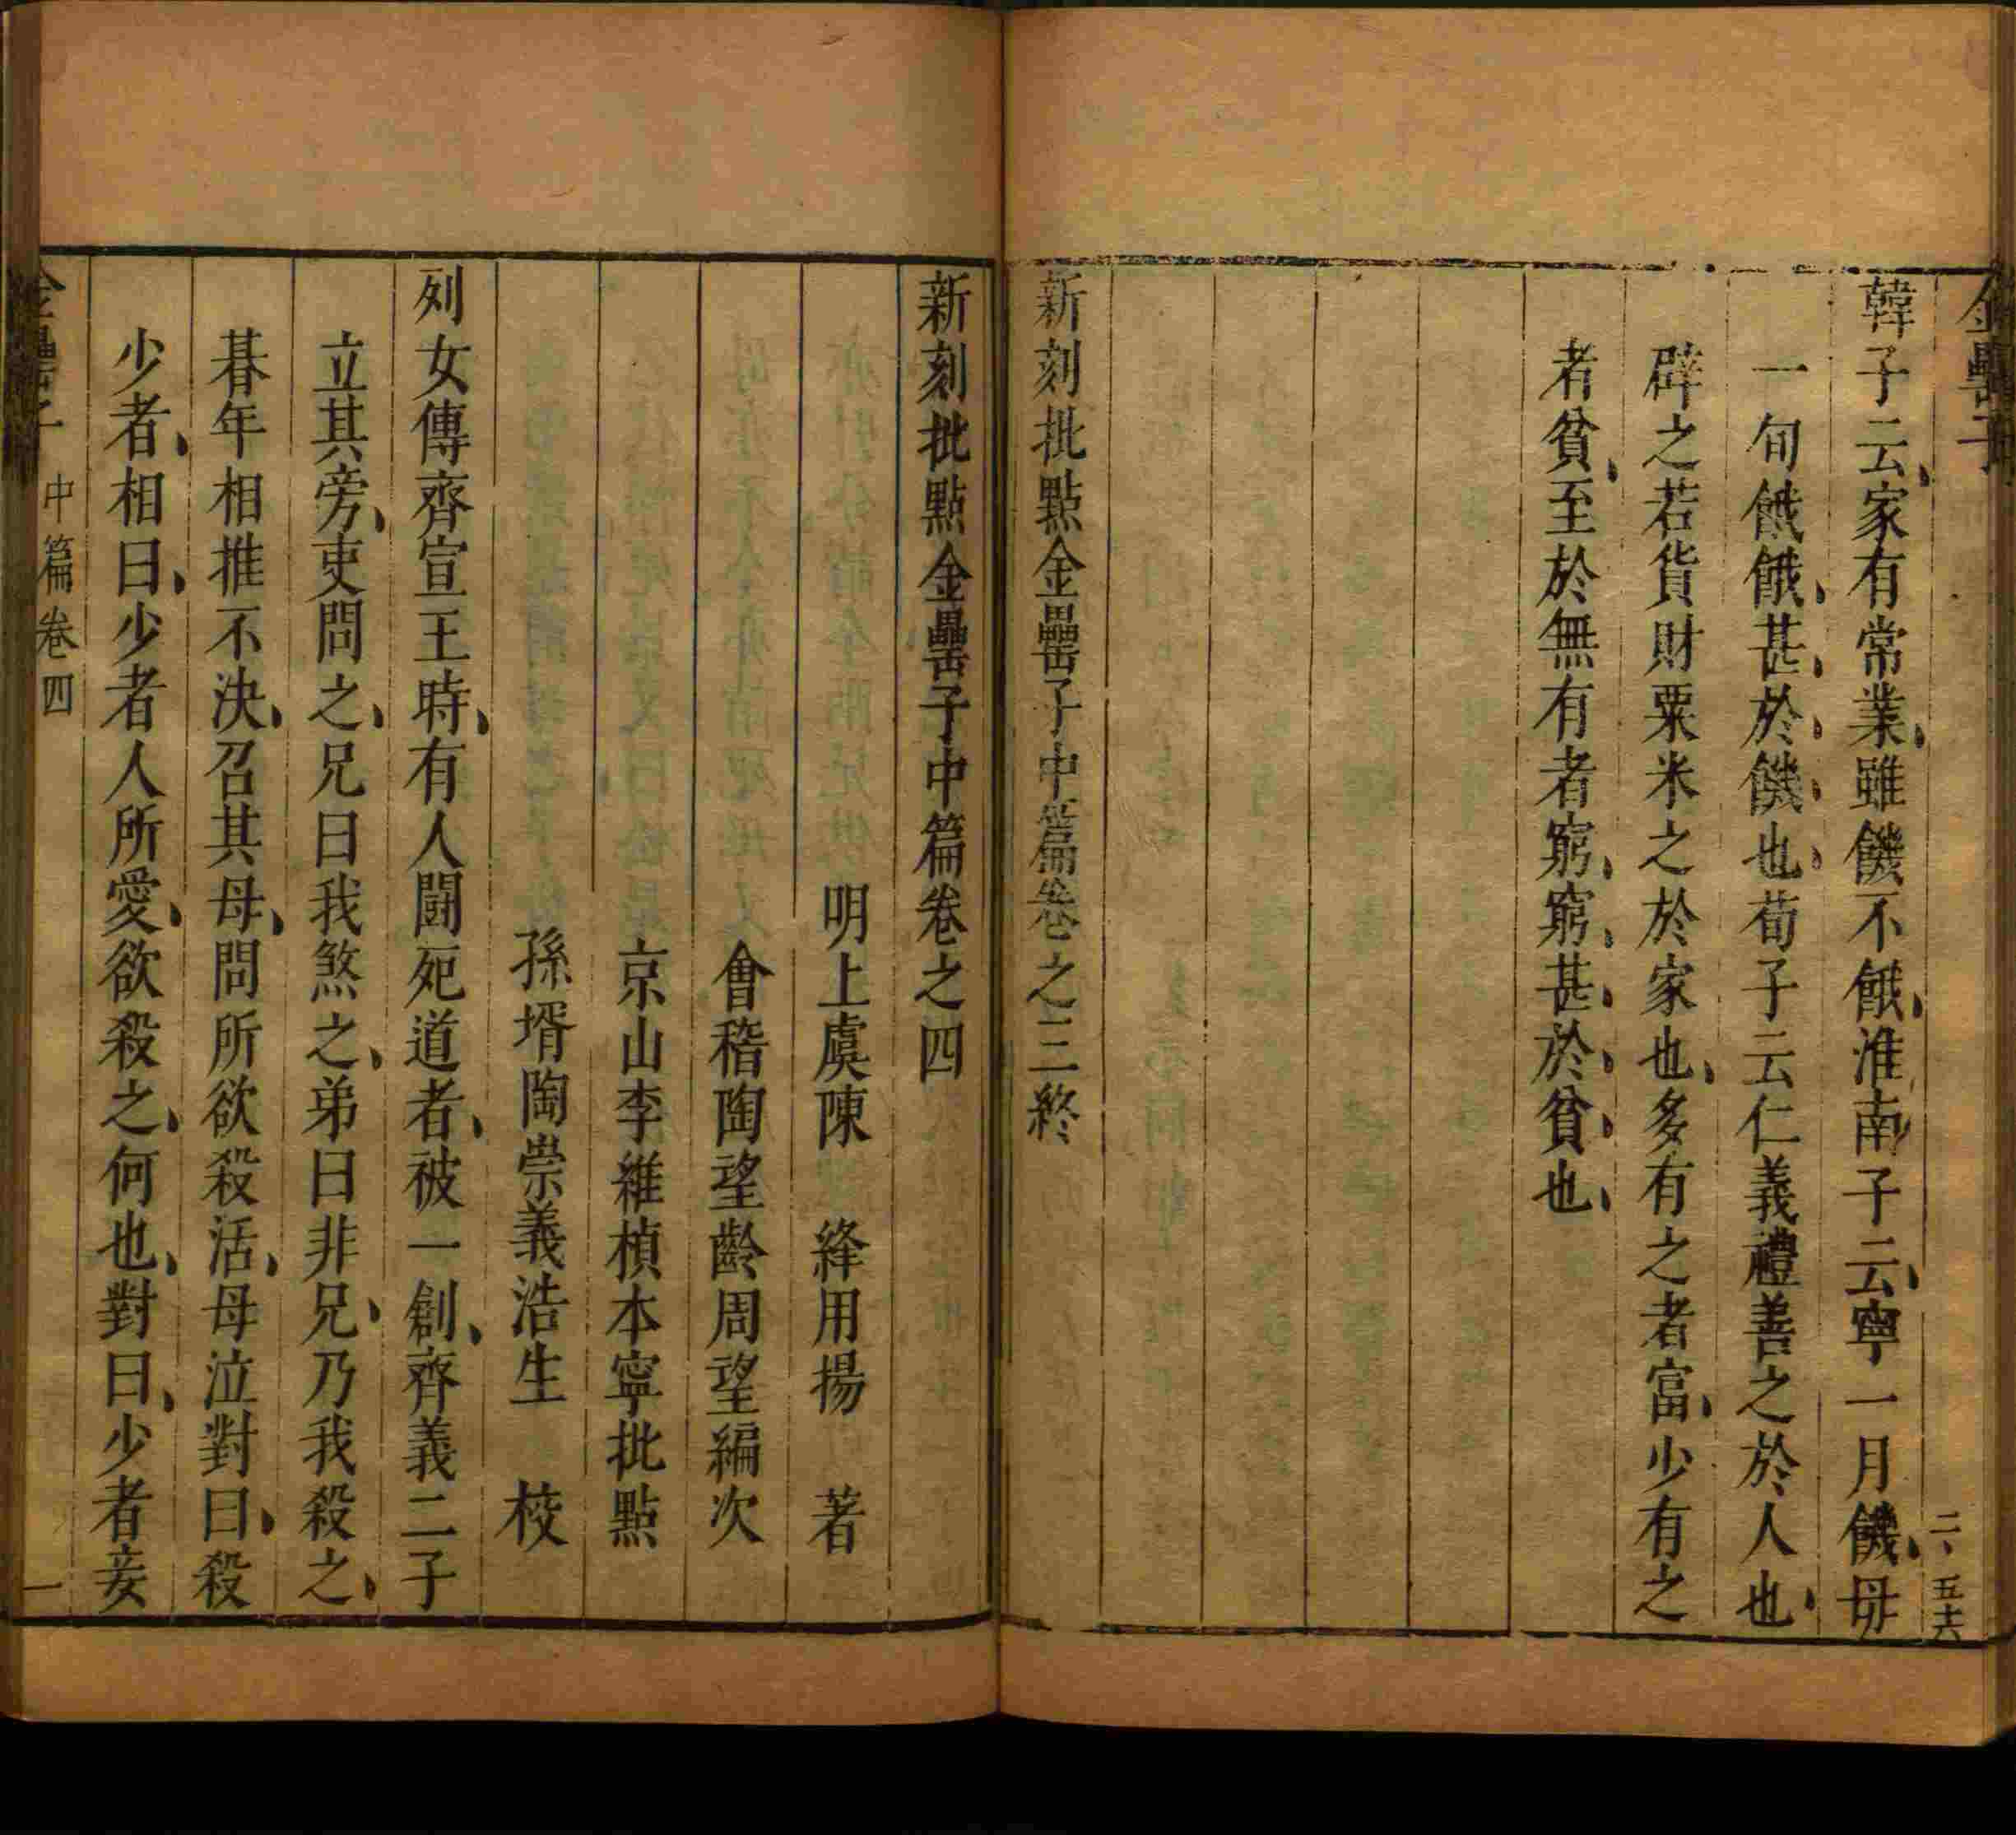 金罍子
二、五十六
韓子云、家有常業、雖饑不餓、淮南子云、寧一月饑、毋
一旬餓餓、甚、於、饑、也、荀子云仁義禮善之於人也、
辟之若貨財粟米之於家也、多有之者富、少有之
者貧、至於無有者窮、窮、甚、於、貧、也、
新刻批點金罍子中篇卷之三終
新刻批點金罍子中篇卷之四
明上虞陳 絳用揚 著
會稽陶望齡周望編次
京山李維楨本寧批點
孫壻陶崇義浩生 校
列女傳齊宣王時、有人鬭死道者、被一創、齊義二子
立其旁、吏問之、兄曰我煞之、弟曰非兄、乃我殺之、
朞年相推不決、召其母、問所欲殺活、母泣對曰、殺
少者、相曰、少者人所愛、欲殺之、何也、對曰、少者妾
金罍子 中篇卷四
一